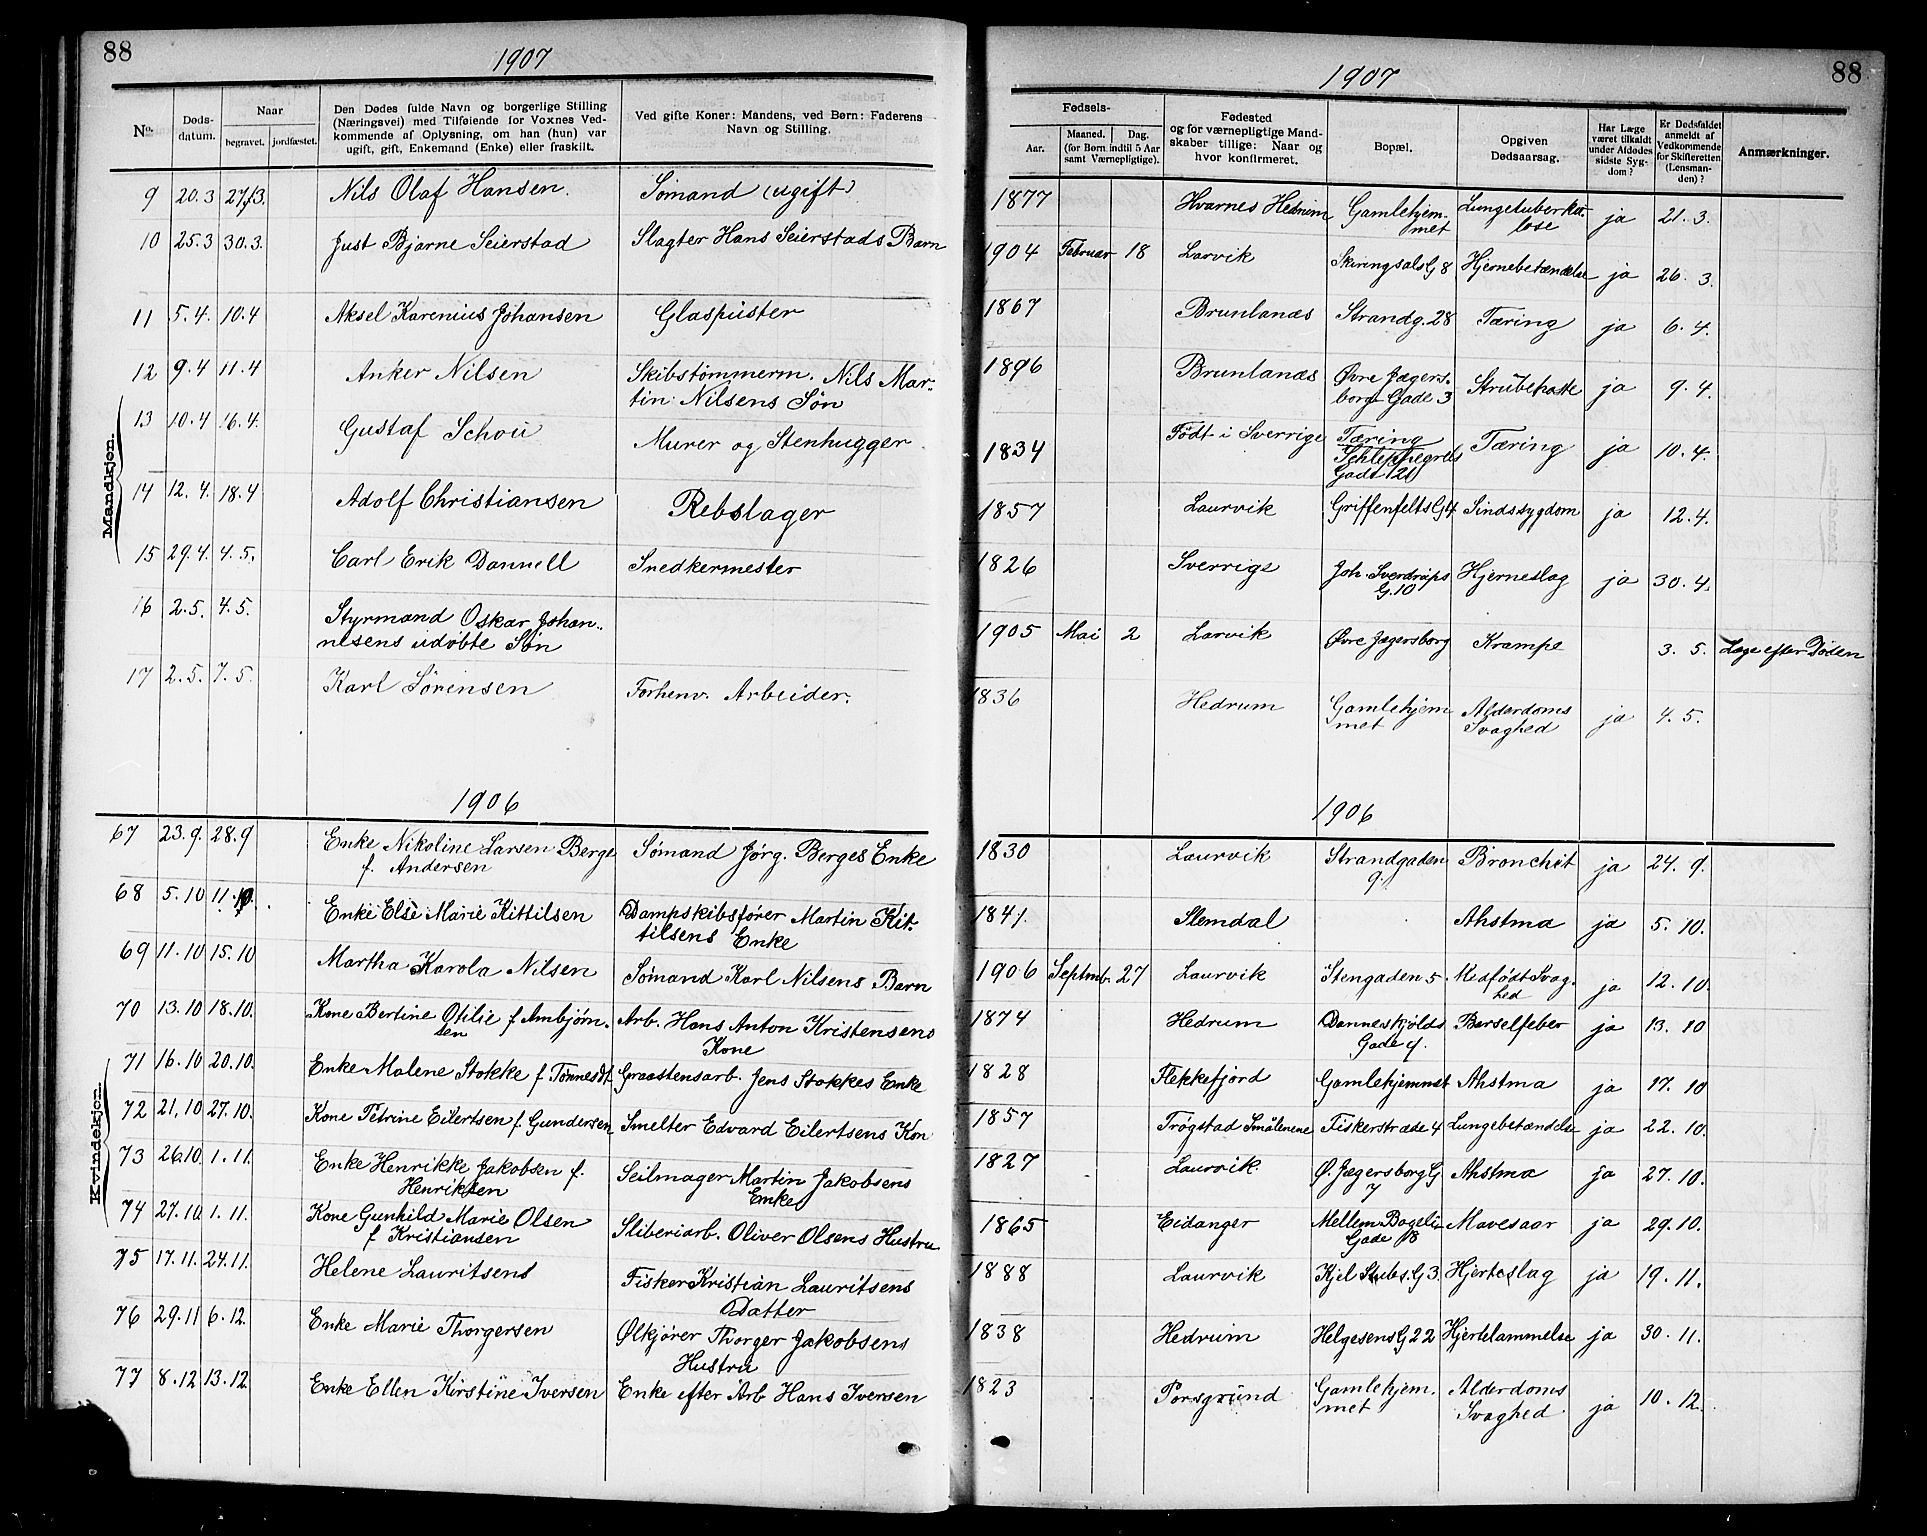 88
1907
No.
Døds-
datum.
Naar
begravet. jordfæstet.
Den Dødes fulde Navn og borgerlige Stilling
(Næringsvei) med Tilføiende for Voxnes Ved-
kommende af Oplysning, om han (hun) var
ugift, gift, Enkemand (Enke) eller fraskilt.
Ved gifte Koner: Mandens, ved Børn: Faderens
Navn og Stilling.
Mandkjøn.
9 20.3 27/3. Nils Olaf Hansen. Sømand (ugift)
10 25.3 30.3. Just Bjarne Seierstad Slagter Hans Seierstads Barn
11 5.4. 10.4 Aksel Karenius Johansen Glaspuster
12 9.4 11.4 Anker Nilsen Skibstømmerm. Nils Mar-
tin Nilsens Søn
13 10.4 16.4. Gustaf Schou Murer og Stenhugger
14 12.4. 18.4 Adolf Christiansen Rebslager
15 29.4. 4.5. Carl Erik Dannell Snedkermester
16 2.5. 4.5. Styrmand Oskar Johan-
nesens udøbte Søn
17 2.5. 7.5. Karl Sørensen Forhenv. Arbeider.
1906
Kvindekjøn.
67 23.9. 28.9 Enke Nikoline Larsen Berge Sømand Jørg. Berges Enke
f. Andersen
68 5.10 11.10. Enke Else Marie Kittilsen Dampskibsfører Martin Kit-
tilsens Enke
69 11.10 15.10 Martha Karola Nilsen Sømand Karl Nilsens Barn
70 13.10 18.10. Kone Bertine Otilie f. Ambjørn- Arb. Hans Anton Kristensens
sen Kone
71 16.10 20.10. Enke Malene Stokke f. Tønnesdt. Graastensarb. Jens Stokkes Enke
72 21.10 27.10. Kone Petrine Eilertsen f. Gundersen Smelter Edvard Eilertsens Kon
73 26.10. 1.11. Enke Henrikke Jakobsen f. Seilmager Martin Jakobsens
Henriksen Enke
74 27.10. 1.11. Kone Gunhild Marie Olsen Sliberiarb. Oliver Olsens Hustru
f. Kristiansen
75 17.11. 24.11. Helene Lauritsens Fisker Kristian Lauritsens
Datter
76 29.11 6.12. Enke Marie Thorgersen Ølkjører Thorger Jakobsens
Hustru
77 8.12 13.12. Enke Ellen Kirstine Iversen Enke efter Arb Hans Iversen
88
1907
Fødsels-
Aar.
Maaned. Dag.
(for Børn indtil 5 Aar
samt Værnepligtige).
Fødested
og for værnepligtige Mand-
skaber tillige: Naar og
hvor konfirmeret.
Bopæl.
Opgiven
Dødsaarsag.
Har Læge
været tilkaldt
under Afdødes
sidste Syg-
dom?
Er Dødsfaldet
anmeldt af
Vedkommende
for Skifteretten
(Lensman-
den)?
Anmærkninger.
1877 Hvarnes Hedrum Gamlehjem- Lungetuberku- ja 21. 3.
met lose
1904 Februar 18 Larvik Skiringsals G 8 Hjernebetændelse ja 26. 3.
1867 Brunlanæs Strandg. 28 Tæring ja 6. 4.
1896 Brunlanæs Øvre Jægers- Strubehoste ja 9. 4.
borg Gade 3
1834 Født i Sverrige Tæring Tæring ja 10. 4.
Schleppegrels
Gade 12
1857 Laurvik Griffenfelts G 4 Sindssygdom ja 12. 4.
1826 Sverrige Joh. Sverdrups Hjerneslag ja 30. 4.
G. 10
1905 Mai 2 Larvik Øvre Jægersborg Krampe 3. 5. Læge efter Døden
1836 Hedrum Gamlehjem Alderdoms ja 4. 5.
met Svaghed
1906
1830 Laurvik Strandgaden Bronchit ja 24. 9.
9.
1841. Slemdal Ahstma ja 5. 10.
1906 Septmb. 27 Laurvik Stengaden 5 Medfødt Svag- ja 12. 10.
hed
1874 Hedrum Danneskjølds Barselfeber ja 13. 10
Gade 4.
1828 Flekkefjord Gamlehjemmet Ahstma ja 17. 10
1857 Trøgstad Smålenene Fiskerstræde 4 Lungebetændelse ja 22. 10.
1827 Laurvik. Ø. Jægersborg G Ahstma ja 27. 10.
7
1865 Eidanger Mellem Bøgeli Mavesaar ja 29. 10.
Gade 18
1888 Laurvik Kjel Stubs. G 3. Hjerteslag ja 19. 11.
1838 Hedrum Helgesens G 22 Hjertelammelse ja 30. 11.
1823 Porsgrund Gamlehjem. Alderdoms ja 10. 12.
met Svaghed